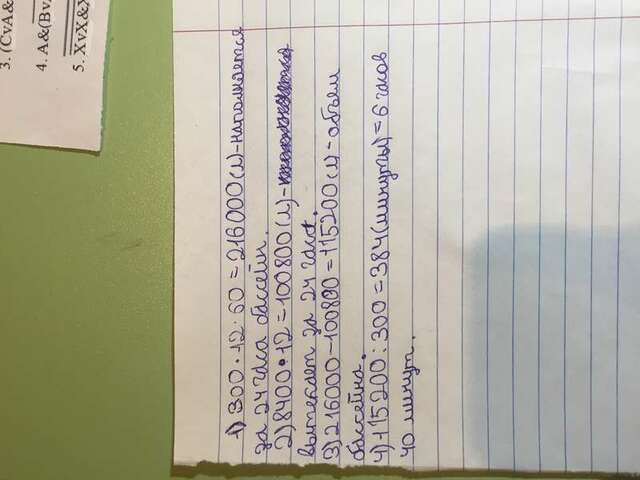 3. (CvA&
4. A&(Bv
5. XvX&X
1) 300 · 12 · 60 = 216000 (л) - наполняется
за 24 часа бассейн.
2) 8400 · 12 = 100800 (л) -
вытекает за 24 часа.
3) 216000 - 100800 = 115200 (л) - объем
бассейна.
4) 115200 : 300 = 384 (минуты) = 6 часов
40 минут.